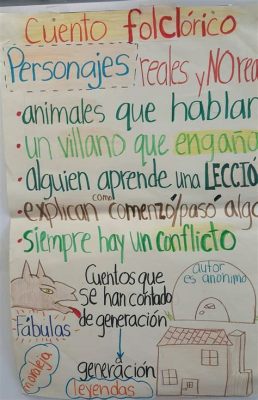 Cuento folclórico
Personajes reales y NO rea
• animales que hablar
• un villano que engaño
• alguien aprende una LECCIÓ
• explican como comenzó/pasó algo
• siempre hay un conflicto
Cuentos que
se han contado
de generación
a
generación
autor
es anónimo
Fábulas
moraleja
leyendas